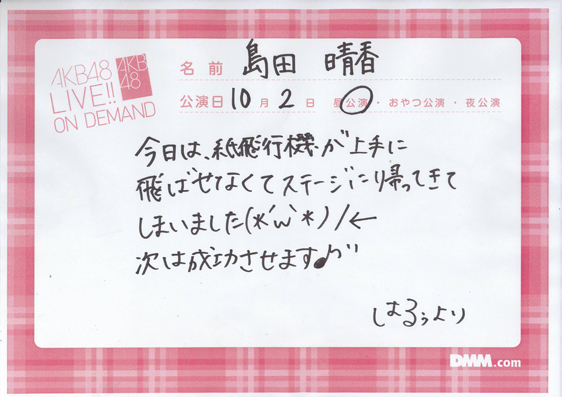 AKB48
LIVE!!
ON DEMAND
AKB
48
名前 島田 晴香
公演日 10月2日 昼公演・おやつ公演・夜公演
今日は、紙飛行機が上手に
飛ばせなくてステージに帰ってきて
しまいました(*´ω`*)/←
次は成功させます♪
はるぅより
DMM.com